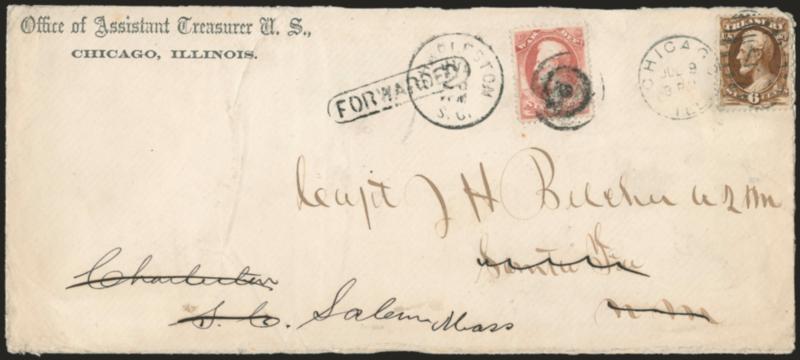 Office of Assistant Treasurer U. S.,
CHICAGO, ILLINOIS.
FORWARDED
CHARLESTON
S. C.
WAR DEP.
CHICAGO
JUL 9
ILL
TREASURY
6
Capt J H Belcher U S M
Santa Fe
N M
Charleston
S. Co. Salem Mass